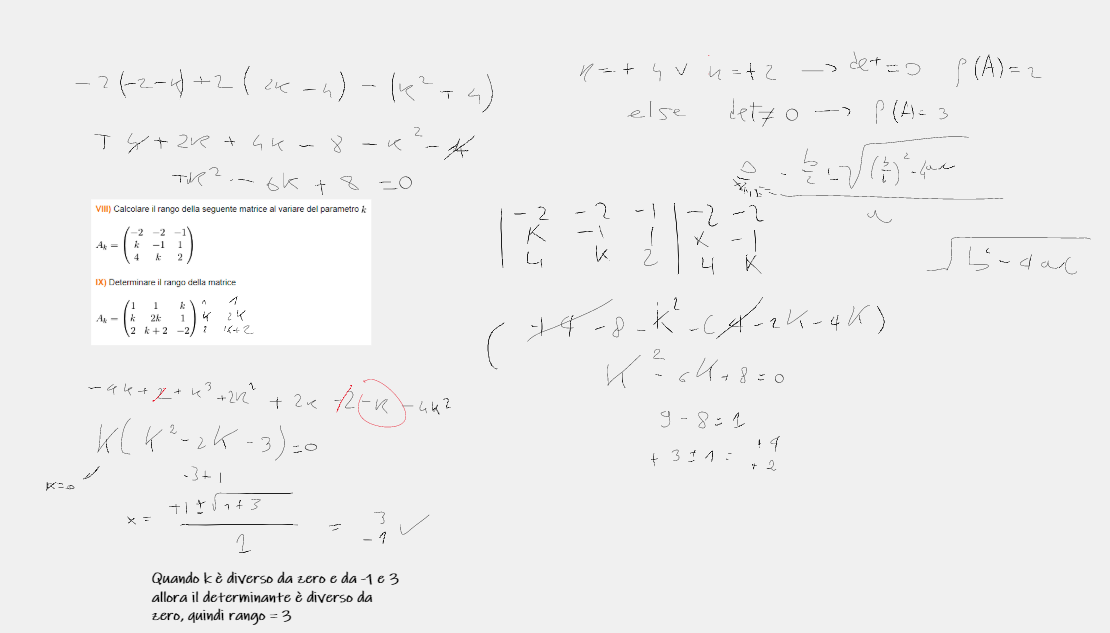 -2(-2-k)+2(2k-4)-(k²+4)
+4+2k+4k-8-k²-4
+k²-6k+8=0
VIII) Calcolare il rango della seguente matrice al variare del parametro k
A_k =
-2 -2 -1
k -1 1
4 k 2
IX) Determinare il rango della matrice
A_k =
1 1 k 1 1
k 2k 1 k 2k
2 k+2 -2 2 k+2
-4k+2+k³+2k²+2k-2-k-4k²
K(K²-2K-3)=0
K=0
-3+1
x = +1±√1+3
1
= 3
-1 ✓
Quando k è diverso da zero e da -1 e 3
allora il determinante è diverso da
zero, quindi rango = 3
k=+4 ∨ k=+2 → det=0 ρ(A)=2
else det≠0 → ρ(A)=3
-2 -2 -1 -2 -2
K -1 1 K -1
4 K 2 4 K
√b²-4ac
(+4-8-K²-(4-2K-4K)
K²-6K+8=0
9-8=1
+3±1= +4
+2